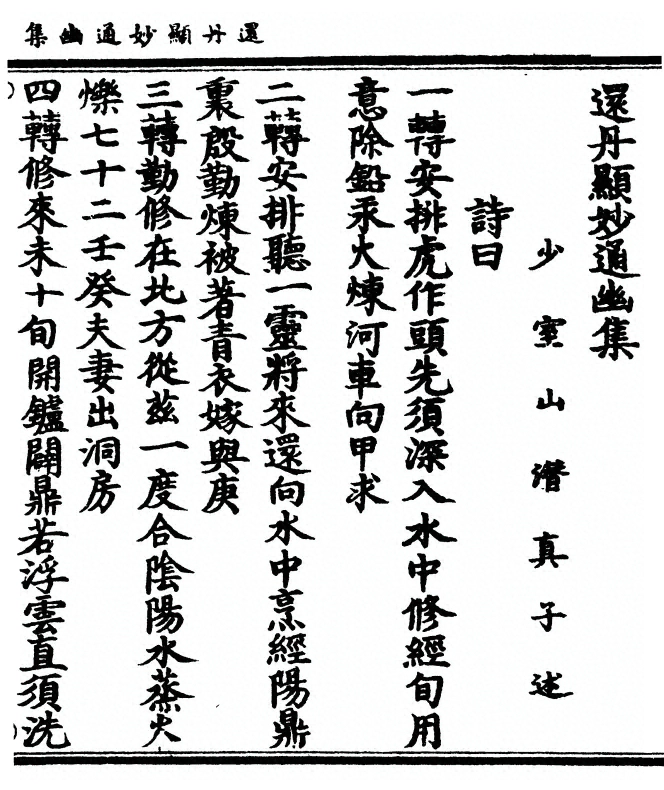 還丹顯妙通幽集
還丹顯妙通幽集
少室山潛真子述
詩曰
一轉安排虎作頭先須深入水中修經旬用
意除鉛汞火煉河車向甲求
二轉安排聽一靈將來還向水中烹經陽鼎
裏殷勤煉被著青衣嫁與庚
三轉勤修在北方從茲一度合陰陽水蒸火
爍七十二壬癸夫妻出洞房
四轉修來未十旬開鑪闢鼎若浮雲直須洗